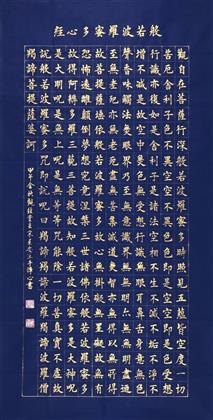 般若波羅蜜多心經
觀自在菩薩行深般若波羅蜜多時照見五蘊皆空度一切
苦厄舍利子色不異空空不異色色即是空空即是色受想
行識亦復如是舍利子是諸法空相不生不滅不垢不淨不
增不減是故空中無色無受想行識無眼耳鼻舌身意無色
聲香味觸法無眼界乃至無意識界無無明亦無無明盡乃
至無老死亦無老死盡無苦集滅道無智亦無得以無所得
故菩提薩埵依般若波羅蜜多故心無罣礙無罣礙故無有
恐怖遠離顛倒夢想究竟涅槃三世諸佛依般若波羅蜜多
故得阿耨多羅三藐三菩提故知般若波羅蜜多是大神咒
是大明咒是無上咒是無等等咒能除一切苦真實不虛故
說般若波羅蜜多咒即說咒曰羯諦羯諦波羅羯諦波羅僧
羯諦菩提薩婆訶
甲午金秋 淨心書